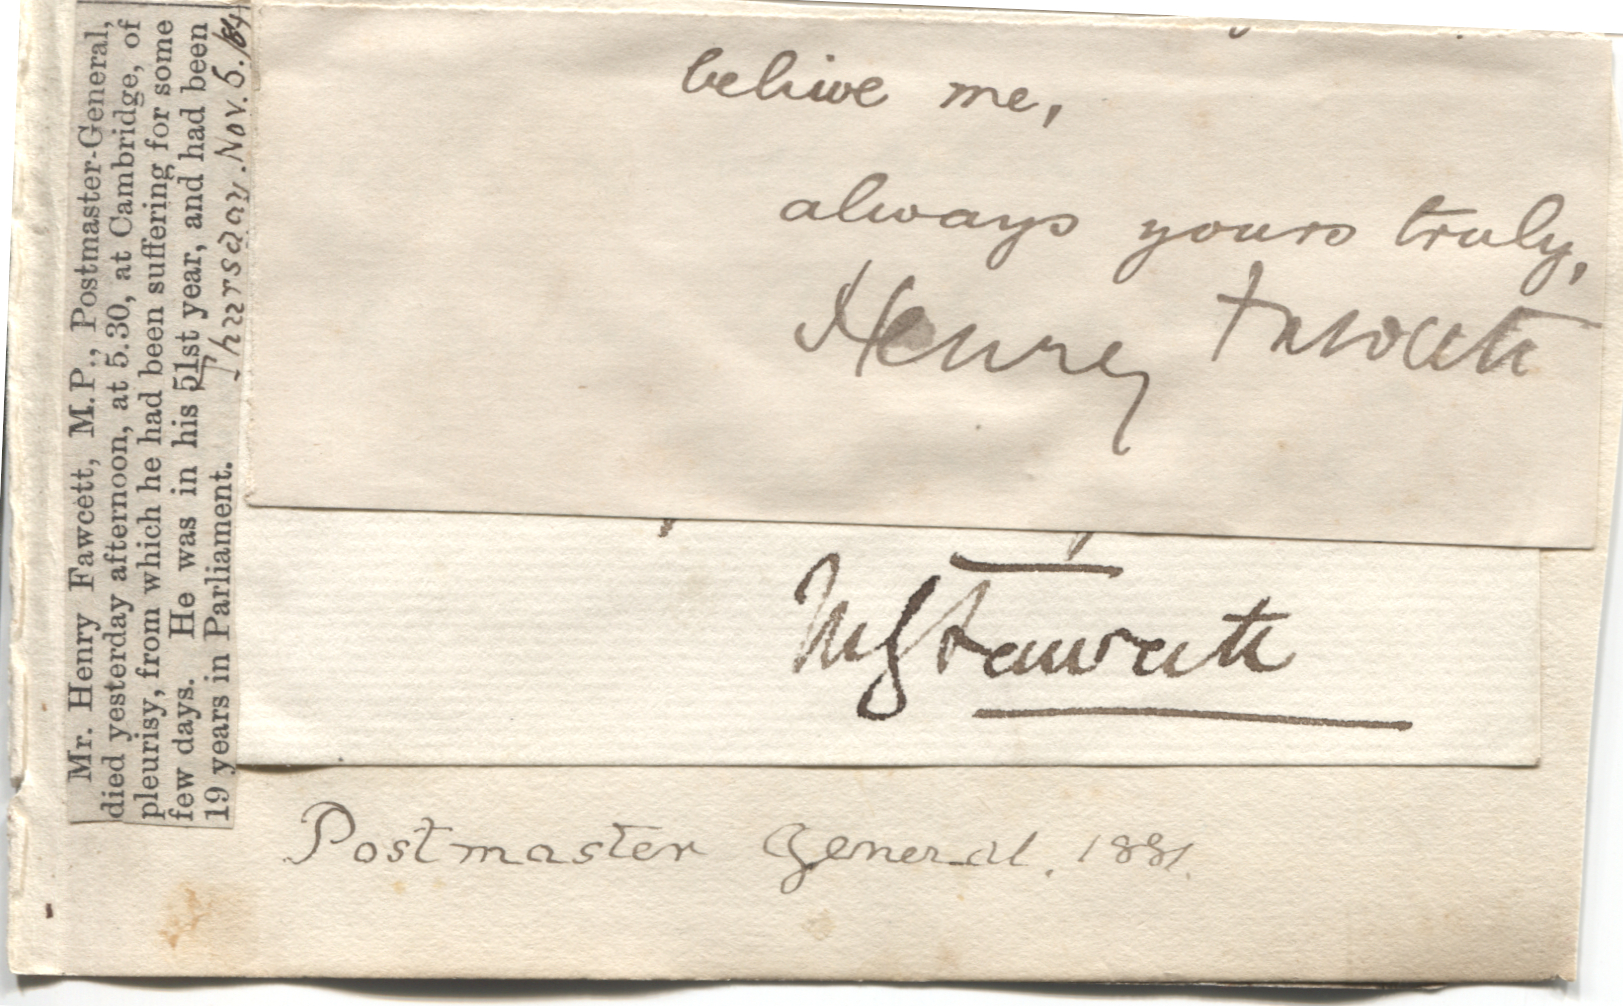 Mr. Henry Fawcett, M.P., Postmaster-General,
died yesterday afternoon, at 5.30, at Cambridge, of
pleurisy, from which he had been suffering for some
few days. He was in his 51st year, and had been
19 years in Parliament.
Thursday. Nov. 6. /84
believe me,
always yours truly,
Henry Fawcett
MGFawcett
Postmaster General. 1881.